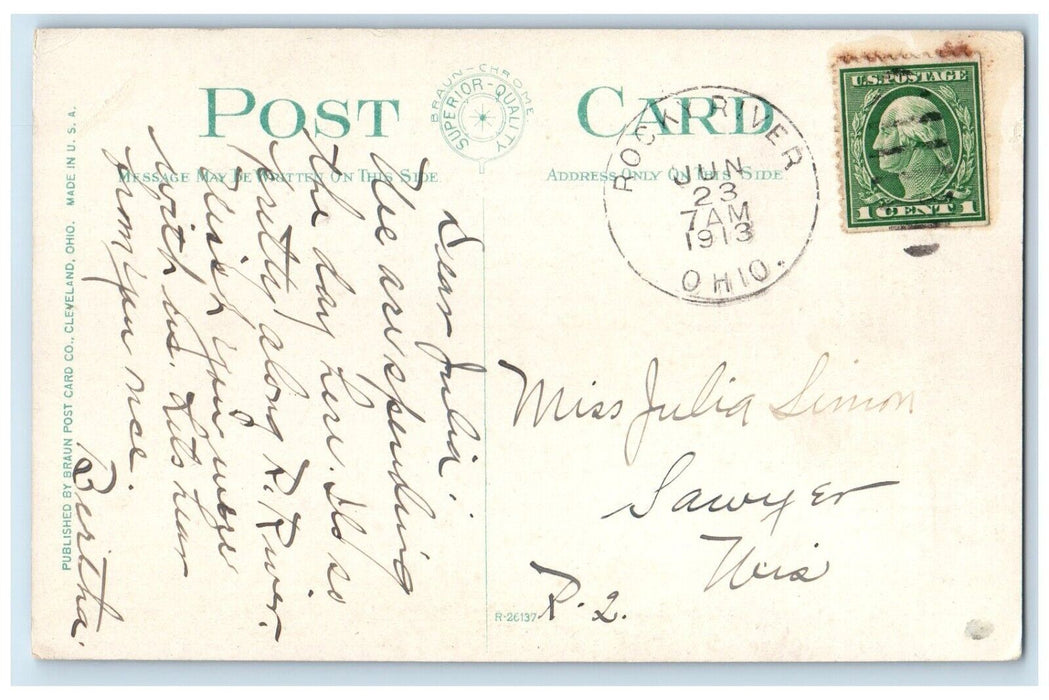 POST CARD
BRAUN-CHROME
SUPERIOR-QUALITY
MESSAGE MAY BE WRITTEN ON THIS SIDE
ADDRESS ONLY ON THIS SIDE
U.S. POSTAGE
1 CENT 1
ROCKY RIVER
JUN
23
7 AM
1913
OHIO.
Dear Julia:
We are spending
the day here. It's so
pretty along R. River.
Wish you were
with us. Lets hear
from you
Bertha.
Miss Julia Simon
Sawyer
Wis
R-2.
R-26137
PUBLISHED BY BRAUN POST CARD CO., CLEVELAND, OHIO. MADE IN U.S.A.